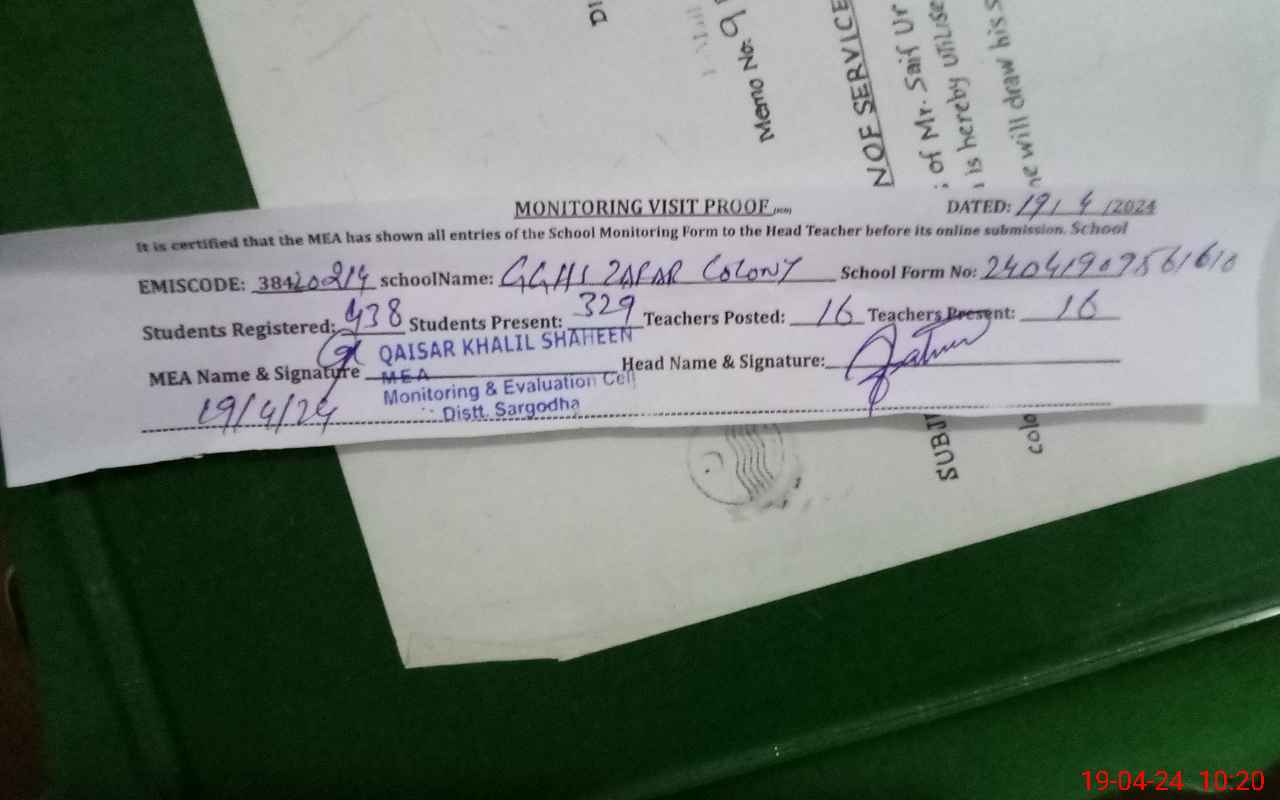 DI
Memo No: 9
NOF SERVICE
: of Mr. Saif Ur
is hereby utilise
he will draw his s
MONITORING VISIT PROOF
DATED: 19/ 4 /2024
It is certified that the MEA has shown all entries of the School Monitoring Form to the Head Teacher before its online submission. School
EMISCODE: 38420214 schoolName: GGHS ZAFAR COLONY School Form No: 24041909561610
Students Registered: 438 Students Present: 329 Teachers Posted: 16 Teachers Present: 16
MEA Name & Signature QAISAR KHALIL SHAHEEN Head Name & Signature:
MEA
Monitoring & Evaluation Cell
Distt. Sargodha
19/4/24
SUBJ
colo
19-04-24 10:20